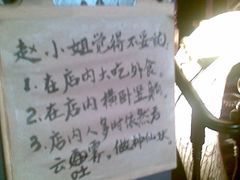 赵小姐觉得不妥的:
1.在店内大吃外食.
2.在店内横卧竖躺.
3.店内人多时依然吞
云吐雾.做神仙状.